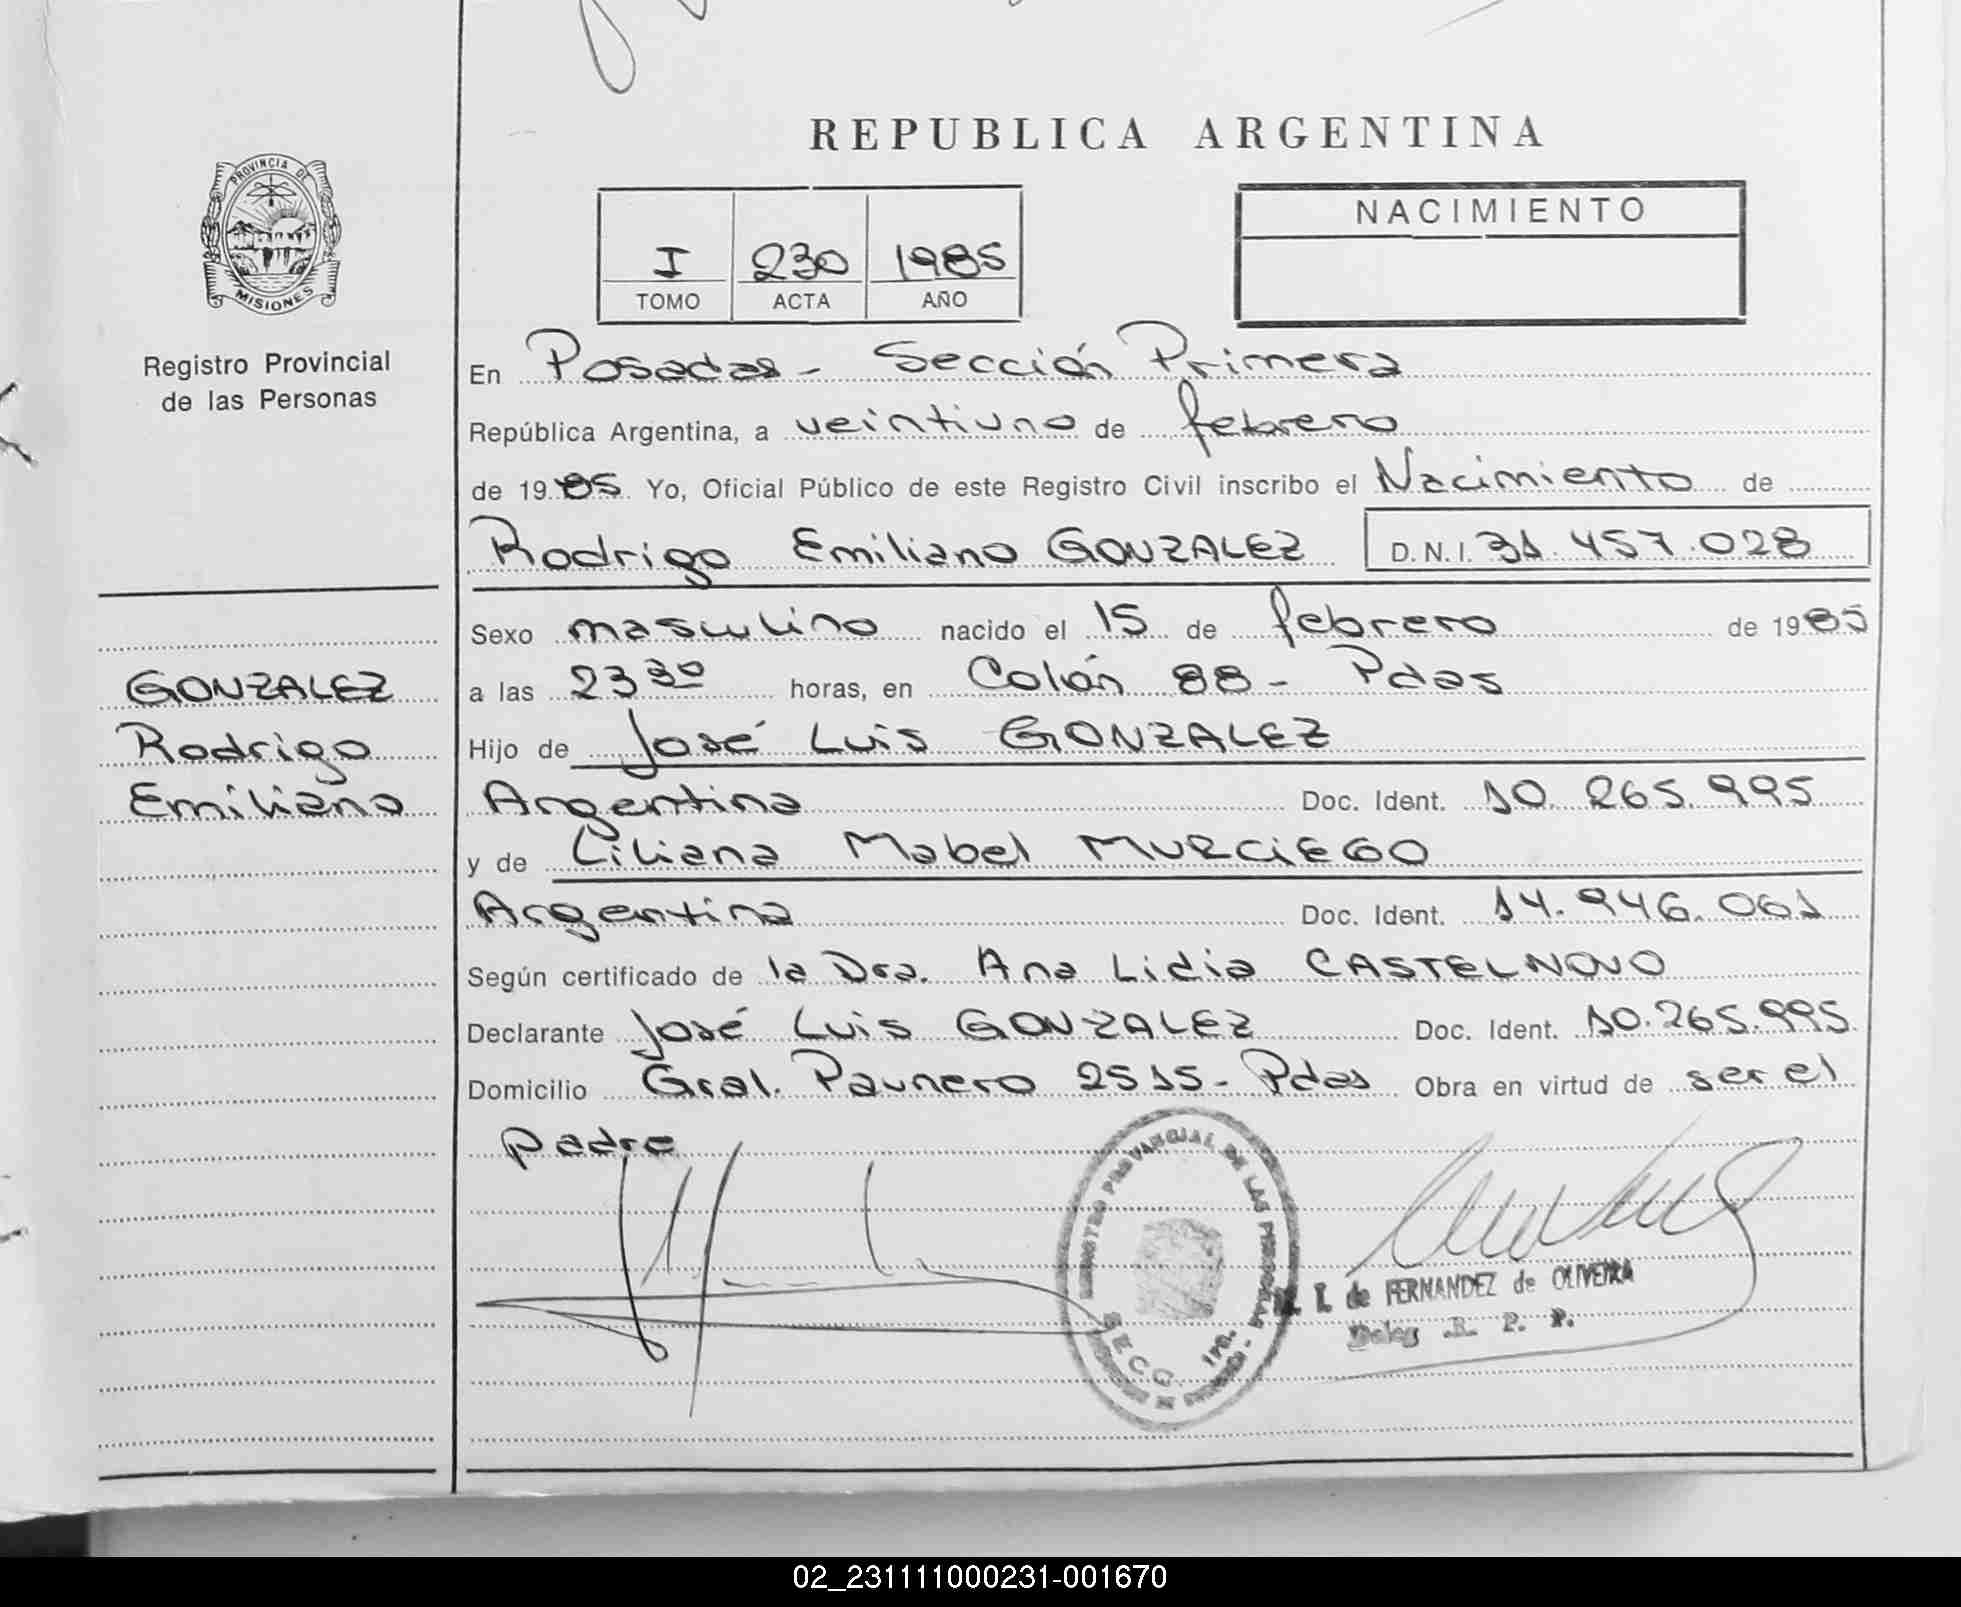 REPUBLICA ARGENTINA
PROVINCIA DE
MISIONES
Registro Provincial
de las Personas
I 230 1985
TOMO ACTA AÑO
NACIMIENTO
En Posadas - Sección Primera
República Argentina, a veintiuno de febrero
de 1985 Yo, Oficial Público de este Registro Civil inscribo el Nacimiento de
Rodrigo Emiliano GONZALEZ D.N.I. 31.457.028
Sexo masculino nacido el 15 de febrero de 1985
GONZALEZ
Rodrigo
Emiliano
a las 23 30 horas, en Colón 88 - Pdas
Hijo de José Luis GONZALEZ
Argentina Doc. Ident. 10.265.995
y de Liliana Mabel MURCiEGO
Argentina Doc. Ident. 14.946.061
Según certificado de la Dra. Ana Lidia CASTELNOVO
Declarante José Luis GONZALEZ Doc. Ident. 10.265.995
Domicilio Gral. Paunero 2515 - Pdas Obra en virtud de ser el
padre
REGISTRO PROVINCIAL DE LAS PERSONAS
SECC. 1RA.
de FERNANDEZ de OLIVEIRA
Deleg R. P. P.
02_231111000231-001670